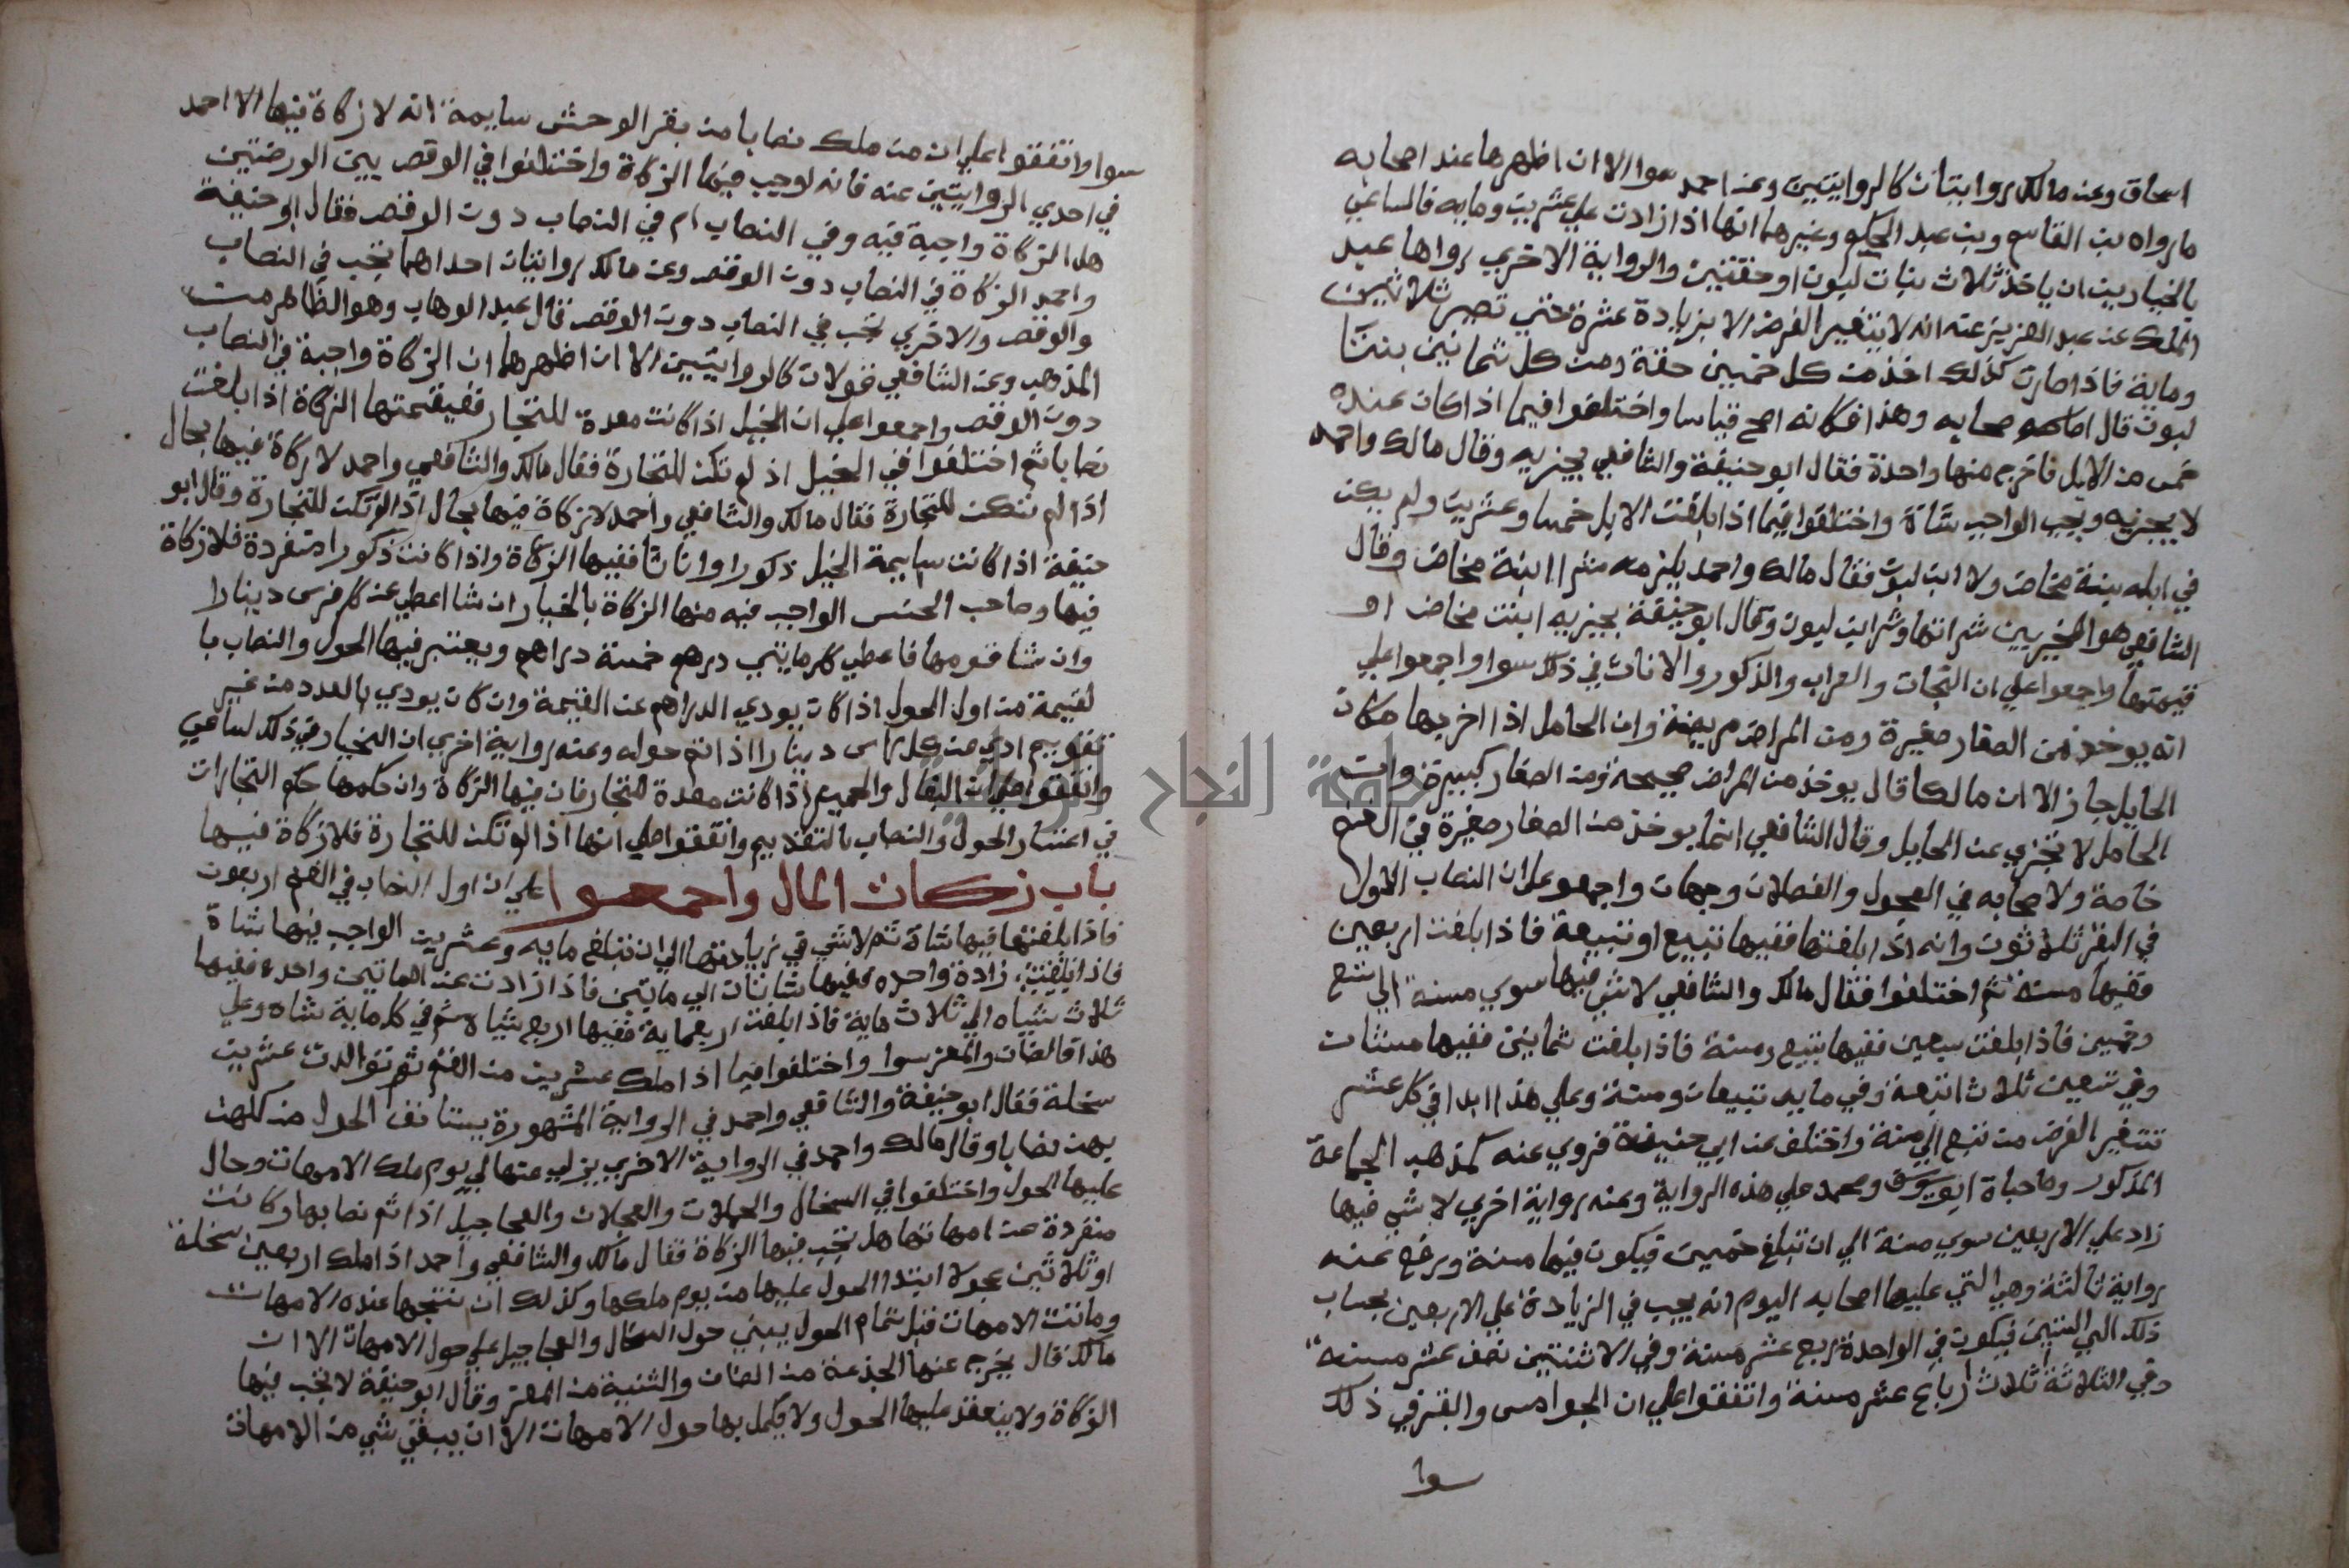 اسحاق وعن مالك روايتان كالروايتين وعن احمد سوا الا ان اظهرها عند اصحابه
ما رواه بن القاسم وبن عبد الحكم وغيرهما انها اذا زادت علي عشرين ومايه فالساعي
بالخيار بين ان ياخذ ثلاث بنات لبون او حقتين والرواية الاخري رواها عبد
الملك عن عبد العزيز عنه انه لا يتغير الفرض الا بزيادة عشرة حتي تصير ثلاثين
وماية فاذا صارت كذلك اخذ من كل خمسين حقة ومن كل ثمانين بنتا
لبون قال اصحابه وهذا فكانه اصح قياسا واختلفوا فيما اذا كان عنده
خمس من الابل فاخرج منها واحدة فقال ابو حنيفة والشافعي يجزيه وقال مالك واحمد
لا يجزيه ويجب الواجب شاة واختلفوا فيما اذا بلغت الابل خمسا وعشرين ولم يكن
في ابله بنة مخاض ولا ابن لبون فقال مالك واحمد يلزمه شرا ابنة مخاض وقال
الشافعي هو مخير بين شرائها وشرا بن لبون وقال ابو حنيفة يجزيه ابنت مخاض او
قيمتها واجمعوا علي ان البخات والعراب والذكور والاناث في ذلك سوا واجمعوا علي
انه يوخذ من الصغار صغيرة ومن المراض مريضة وان الحامل اذا اخرجها مكان
الحايل جاز الا ان مالكا قال يوخذ من المراض صحيحة ومن الصغار كبيرة وان
الحامل لا تجزي عن الحايل وقال الشافعي انما يوخذ من الصغار صغيرة في الغنم
خاصة ولاصحابه في العجول والفصلان وجهان واجمعو علي ان النصاب الاول
في البقر ثلاثون وانه اذا بلغتها ففيها تبيع او تبيعة فاذا بلغت اربعين
ففيها مسنة ثم اختلفوا فقال مالك والشافعي لا شي فيها سوي مسنة الي تسع
وخمسين فاذا بلغت سبعين ففيها تبيع ومسنة فاذا بلغت ثمانين ففيها مسنتان
وفي تسعين ثلاث اتبعة وفي مايه تبيعان ومسنة وعلي هذا ابدا في كل عشر
تتغير الفرض من تبيع الي مسنة واختلف عن ابي حنيفة فروي عنه كمذهب الجماعة
المذكور وصاحباه ابو يوسف ومحمد علي هذه الرواية وعنه رواية اخري لا شي فيها
زاد علي الاربعين سوي مسنة الي ان تبلغ خمسين فيكون فيها مسنة وربع عنه
رواية ثالثة وهي التي عليها اصحابه اليوم انه يجب في الزيادة علي الاربعين بحساب
ذلك الي الستين فيكون في الواحدة ربع عشر مسنة وفي الاثنتين نصف عشر مسنه
وفي الثلاثة ثلاث ارباع عشر مسنة واتفقوا علي ان الجواميس والبقر في ذلك
سوا
سوا واتفقوا علي ان من ملك نصابا من بقر الوحش سايمة انه لا زكاة فيها الا احمد
في احدي الروايتين عنه فانه اوجب فيها الزكاة واختلفوا في الوقص بين الورضتين
هل الزكاة واجبة فيه وفي النصاب ام في النصاب دون الوقص فقال ابو حنيفة
واحمد الزكاة في النصاب دون الوقص وعن مالك روايتان احداهما تجب في النصاب
والوقص والاخري تجب في النصاب دون الوقص قال عبد الوهاب وهو الظاهر من
المذهب وعن الشافعي قولان كالروايتين الا ان اظهرهما ان الزكاة واجبة في النصاب
دون الوقص واجمعوا علي ان الخيل اذا كانت معدة للتجار ففي قيمتها الزكاة اذا بلغت
نصابا ثم اختلفوا في الخيل اذ لم تكن للتجارة فقال مالك والشافعي واحمد لا زكاة فيها بحال
اذا لم تكن للتجارة فقال مالك والشافعي واحمد لا زكاة فيها بحال اذ الم تكن للتجارة وقال ابو
حنيفة اذا كانت سايمة الخيل ذكورا واناثا ففيها الزكاة واذا كانت ذكورا متفردة فلا زكاة
فيها وصاحب الجنس الواجب فيه منها الزكاة بالخيار ان شا اعطي عن كل فرس دينارا
وان شا قومها فاعطي كل مايتي درهم خمسة دراهم ويعتبر فيها الحول والنصاب با
لقيمة من اول الحول اذا كان يودي الدراهم عن القيمة وان كان يودي بالعدد من غير
تقويم ادي عن كل راس دينارا اذا تم حوله وعنه رواية اخري ان الخيار في ذلك لساعي
واتفقوا علي ان البغال والحمير اذا كانت معدة للتجار فان فيها الزكاة وان حكمها حكم التجارات
في اعتبار الحول والنصاب بالتقديم واتفقوا علي انها اذا لم تكن للتجارة فلا زكاة فيها
باب زكاة المال واجمعوا علي ان اول النصاب في الغنم اربعون
فاذا بلغتها فيها شاة ثم لا شي في زيادتها الي ان تبلغ مايه وعشرين الواجب فيها شاة
فاذا بلغت زادة واحده ففيها شاتان الي مايتين فاذا زادت عن المايتين واحده ففيها
ثلاث شياه الي ثلاث ماية فاذا بلغت اربعماية ففيها اربع شياه ثم في كل ماية شاه وعلي
هذا فالضان والمعز سوا واختلفوا فيما اذا ملك عشرين من الغنم ثم توالدت عشرين
سخلة فقال ابو حنيفة والشافعي واحمد في الرواية المشهورة يستانف الحول من كلهن
بهن نصابا وقال مالك واحمد في الرواية الاخري يزكي عنها لي يوم ملك الامهات وحال
عليها الحول واختلفوا في السخال والحملان والعجلان والعجاجيل اذا تم نصابها وكانت
منفردة عن امهاتها هل تجب فيها الزكاة فقال مالك والشافعي واحمد اذا ملك اربعين سخلة
او ثلاثين عجولا ابتدا الحول عليها من يوم ملكها وكذلك ان نتجها عنده الامهات
وماتت الامهات قبل تمام الحول يبني حول السخال والعجاجيل علي حول الامهات الا ان
مالك قال يخرج عنها الجذعة من الضان والثنية من المعز وقال ابو حنيفة لا تجب فيها
الزكاة ولا ينعقد عليها الحول ولا يكمل بها حول الامهات الا ان يبقي شي من الامهات